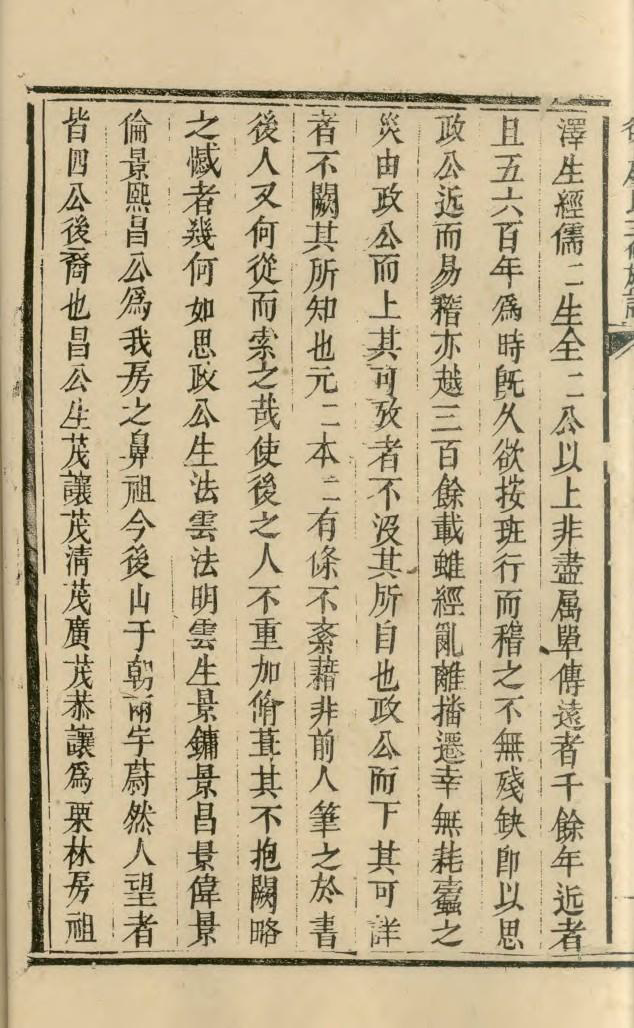 澤生經儒二生全二公以上非盡属單傳遠者千餘年近者
且五六百年爲時旣久欲按班行而稽之不無殘缺卽以思
政公近而易稽亦越三百餘載雖經亂離播遷幸無耗蠹之
災由政公而上其可攷者不没其所自也政公而下其可詳
者不闕其所知也元二本二有條不紊藉非前人筆之於書
後人又何從而索之哉使後之人不重加脩葺其不抱闕略
之憾者幾何如思政公生法雲法明雲生景鏞景昌景偉景
倫景熙昌公爲我房之鼻祖今後山于朝兩宇蔚然人望者
皆四公後裔也昌公生茂讓茂清茂廣茂恭讓爲栗林房祖